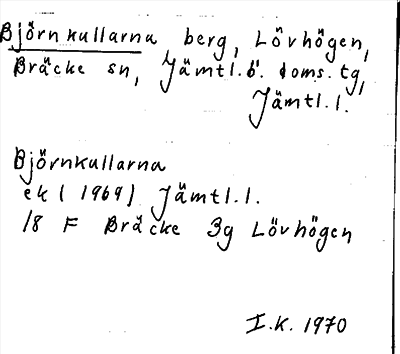 Björnkullarna berg, Lövhögen,
Bräcke sn, Jämtl.ö. doms.tg,
Jämtl.l.
Björnkullarna
ek (1969) Jämtl.l.
18 F Bräcke 3g Lövhögen
I.K. 1970